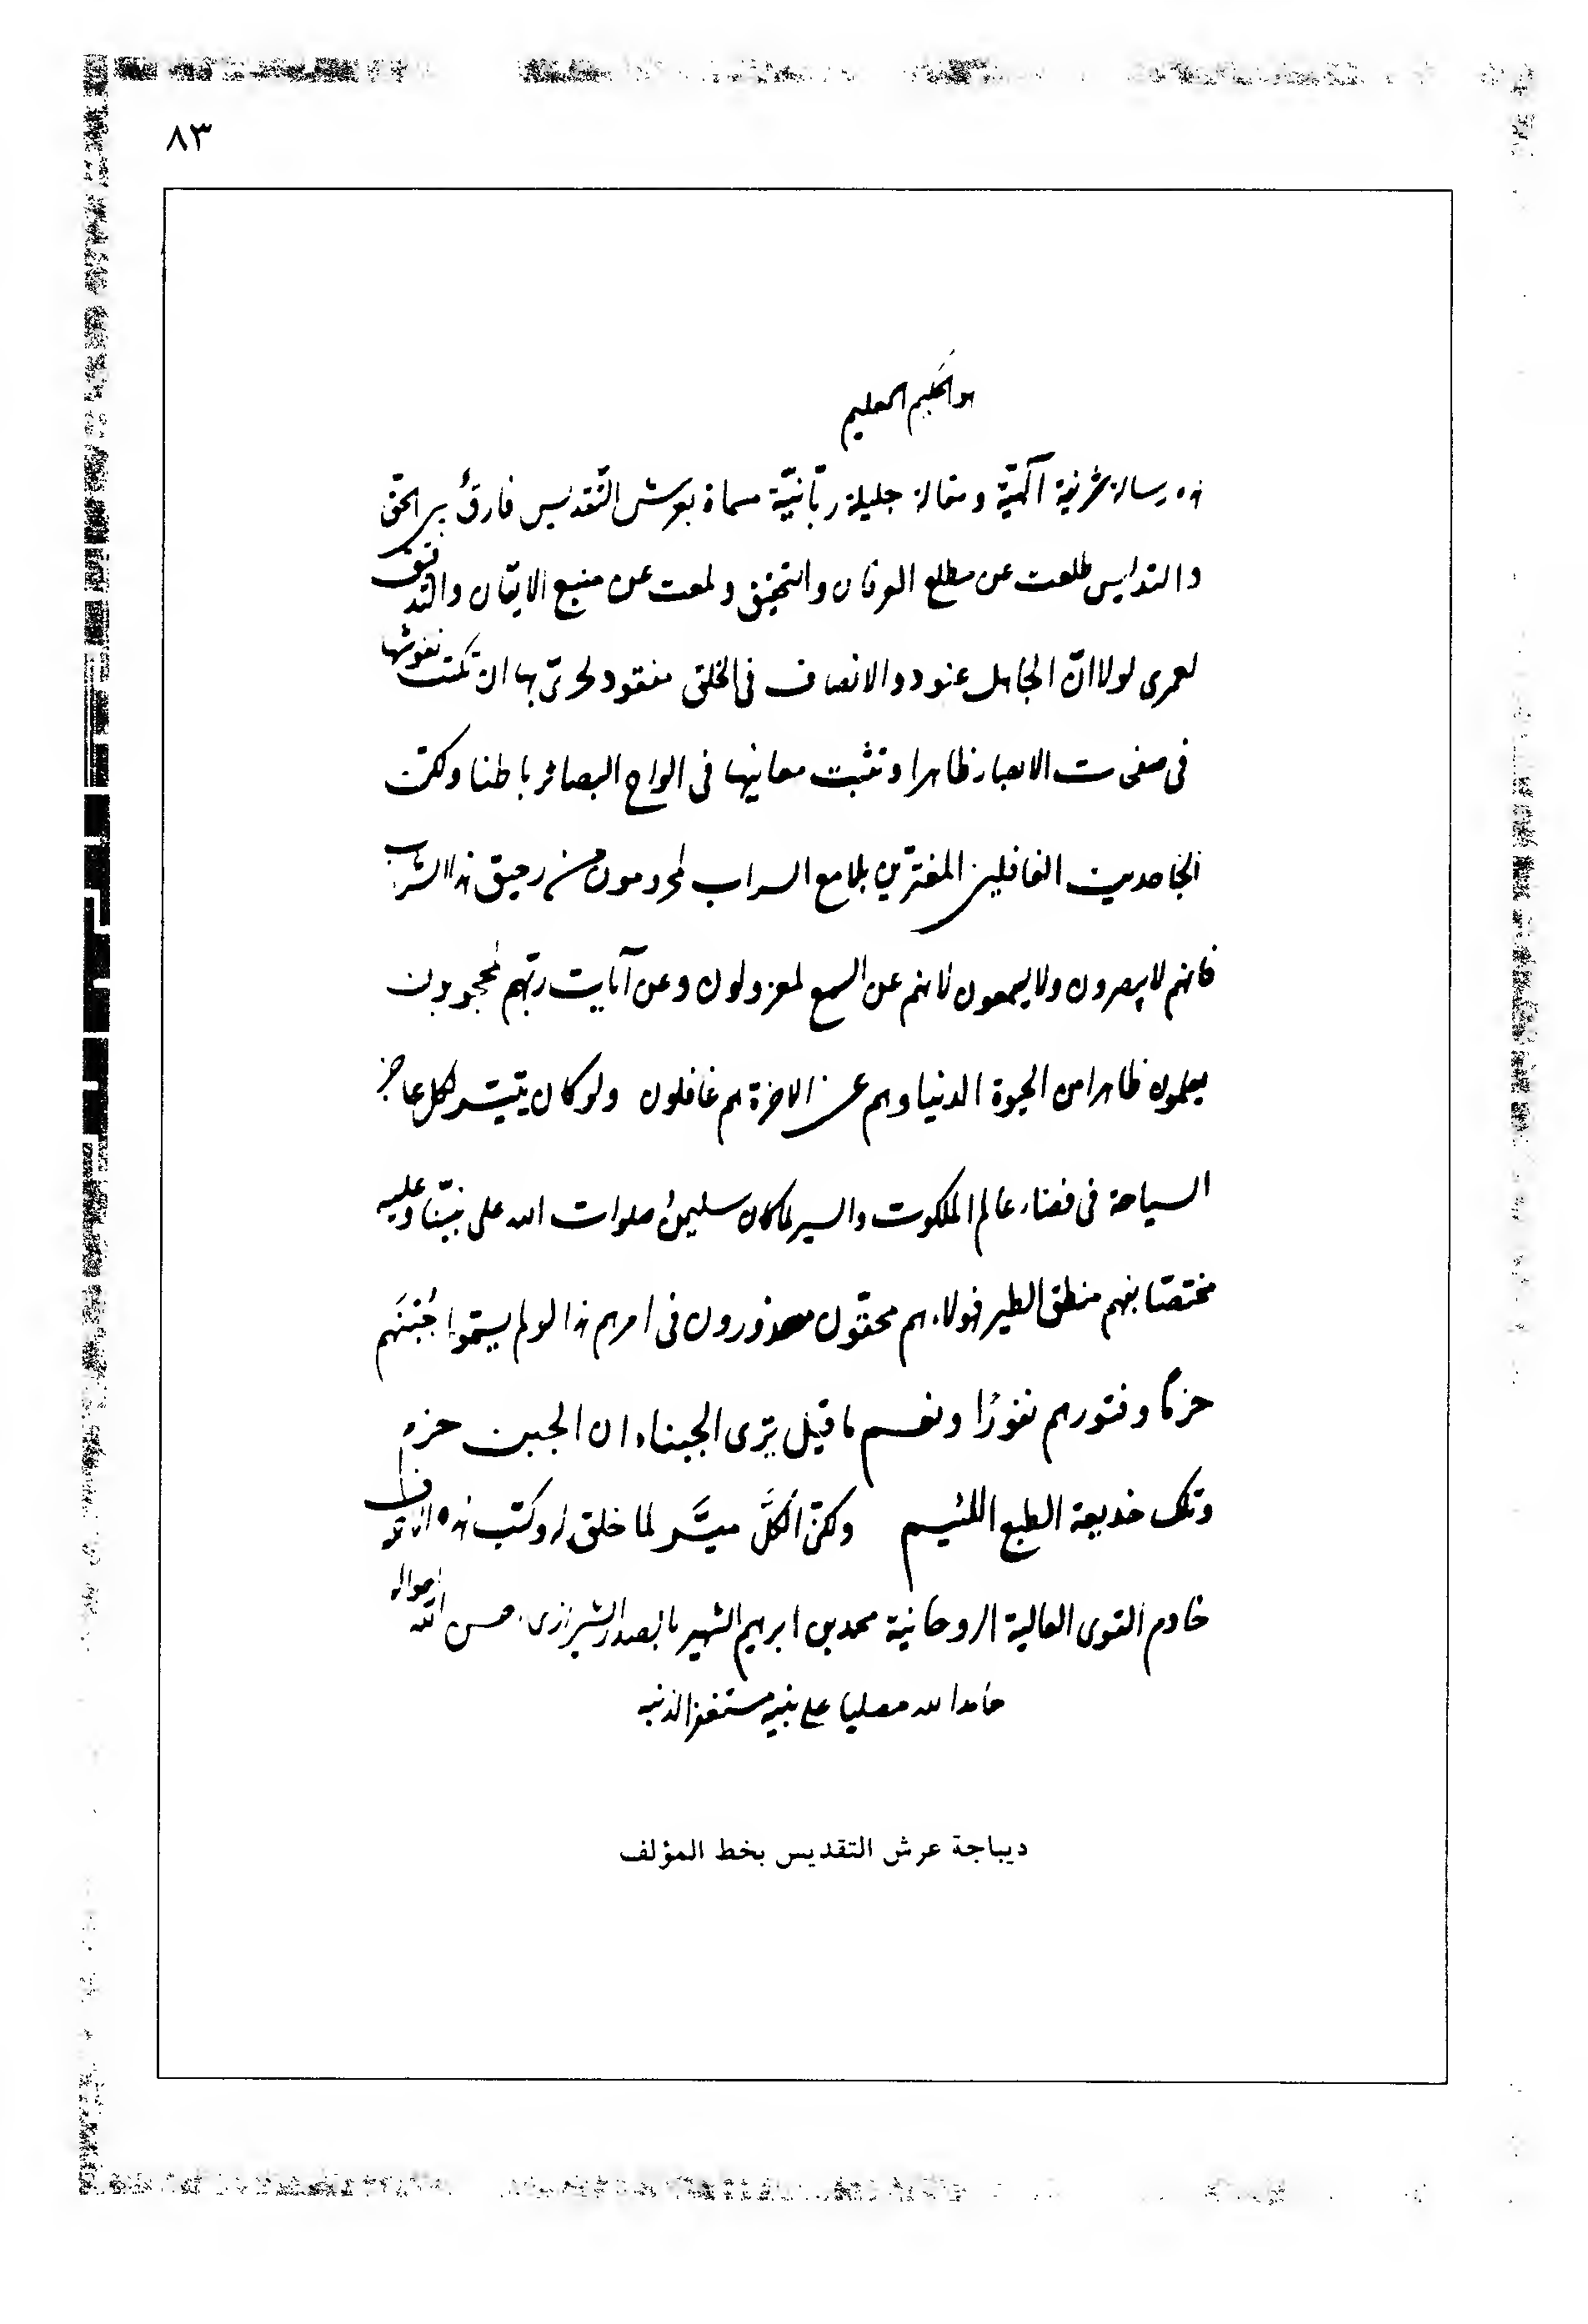 ٨٣
هو الحكيم العليم
هذه رسالة شريفة آلهيّة ومقالة جليلة ربّانيّة مسماة بعرش التّقديس فارق بين الحق
والتدليس طلعت عن مطلع العرفان والتحقيق ولمعت عن منبع الايقان والتدقيق
لعمرى لولا انّ الجاهل عنود والانصاف فى الخلق مفقود لحرىّ بها ان تكتب نقوشها
فى صفحات الابصار ظاهرا وتثبت معانيها فى الواح البصائر باطنا ولكن
الجاحدين الغافلين المغترّين بلامع السراب لمحرومون من رحيق هذا الشراب
فانهم لا يبصرون ولا يسمعون لانهم عن السمع لمعزولون وعن آيات ربّهم لمحجوبون
يعلمون ظاهرا من الحيوة الدنيا وهم عن الاخرة هم غافلون ولو كان يتيسّر لكل عاجز
السياحة فى فضاء عالم الملكوت والسير لما كان سليمن صلوات الله على نبيّنا وعليه
مختصّا بفهم منطق الطير فهولاء هم محقّون معذورون فى امرهم هذا لو لم يسمّوا جُبْنَهم
حزمًا وفتورهم نفورًا ونعم ما قيل يرى الجبناء ان الجبن حزم
وتلك خديعة الطبع اللئيم ولكنّ الكلَّ ميسَّر لما خلق له وكتب هذه
خادم القوى العالية الروحانية محمد بن ابرهيم الشهير بالصدر الشيرازى حسن الله احواله
حامدا لله مصليا على نبيه مستغفرا لذنبه
ديباجة عرش التقديس بخط المؤلف